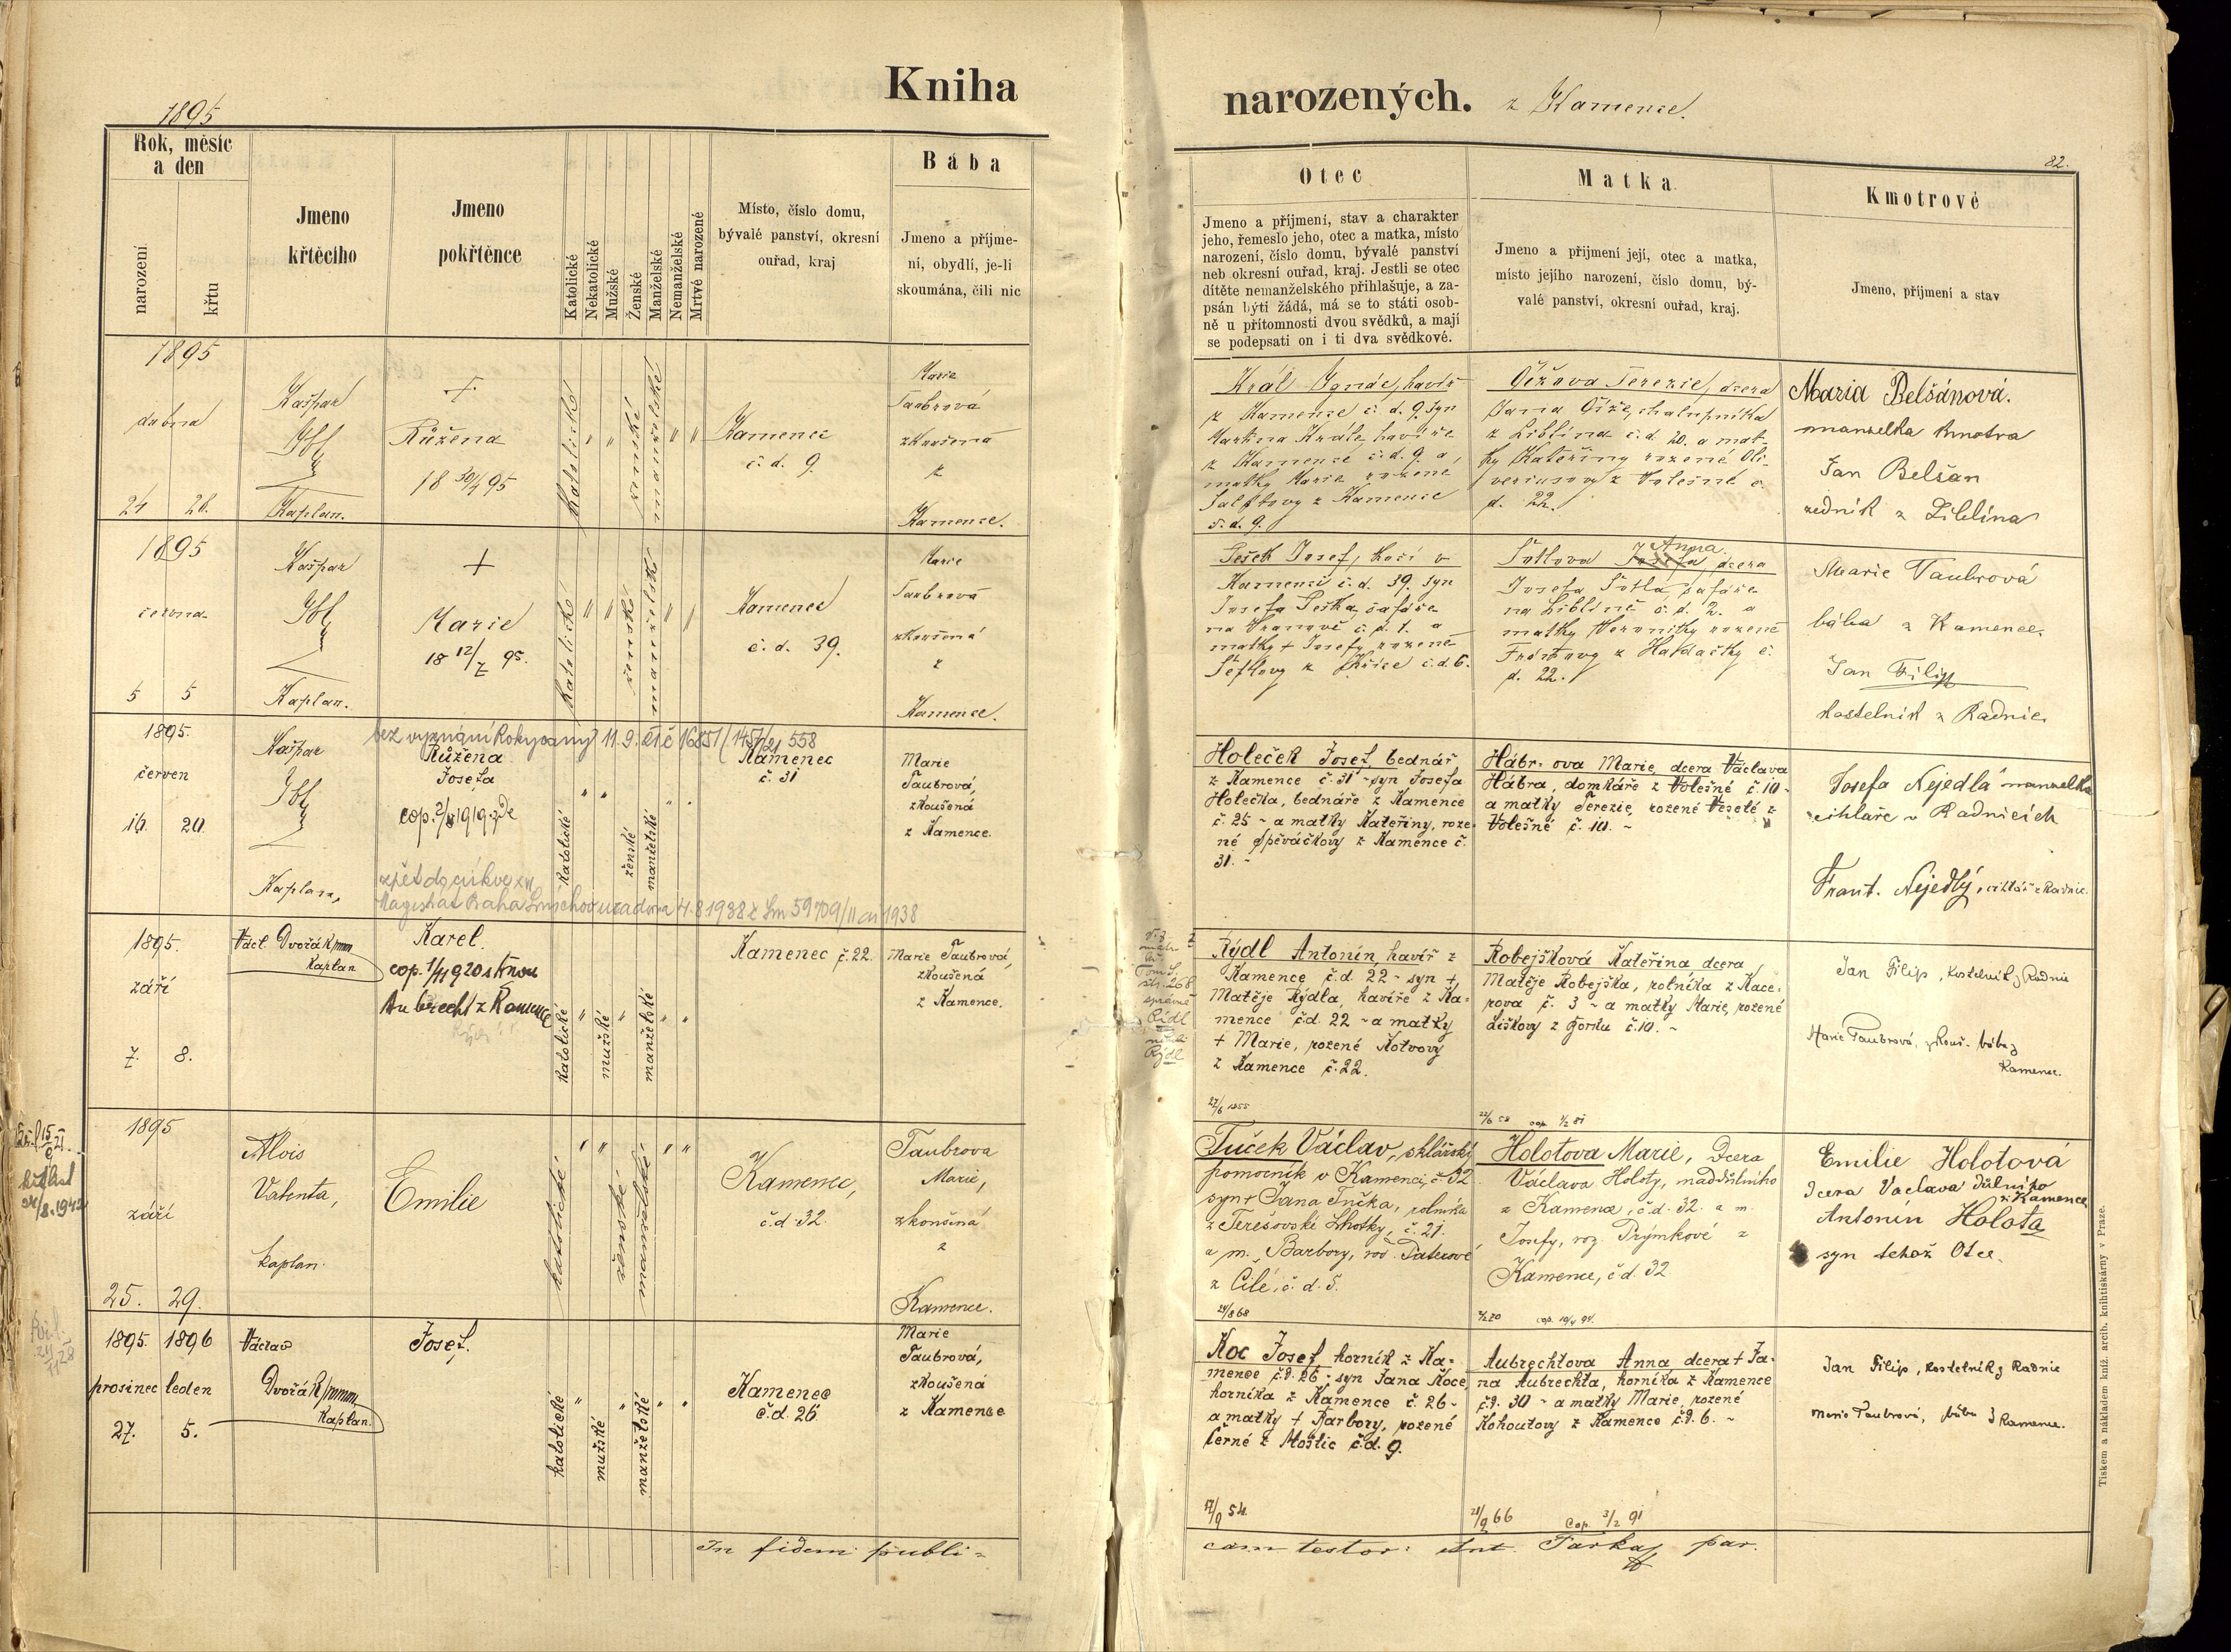 1895
Kniha
narozených. z Kamence.
82.
Rok, měsíc
a den
narození
křtu
Jmeno
křtěcího
Jmeno
pokřtěnce
Katolické
Nekatolické
Mužské
Ženské
Manželské
Nemanželské
Mrtvé narozené
Místo, číslo domu,
bývalé panství, okresní
ouřad, kraj
Bába
Jmeno a příjme-
ní, obydlí, je-li
skoumána, čili nic
Otec
Jmeno a příjmení, stav a charakter
jeho, řemeslo jeho, otec a matka, místo
narození, číslo domu, bývalé panství
neb okresní ouřad, kraj. Jestli se otec
dítěte nemanželského přihlašuje, a za-
psán býti žádá, má se to státi osob-
ně u přítomnosti dvou svědků, a mají
se podepsati on i ti dva svědkové.
Matka
Jmeno a přijmení její, otec a matka,
místo jejího narození, číslo domu, bý-
valé panství, okresní ouřad, kraj.
Kmotrové
Jmeno, příjmení a stav
1895
dubna
24 28.
Kašpar
Ibl
Kaplan.
+
Růžena
18 30/4 95
katolické " " ženské manželské " "
Kamenec
č. d. 9.
Marie
Taubrová
zkoušená
z
Kamence.
Král Ignác, havíř
z Kamence č. d. 9. syn
Martina Krále, havíře
z Kamence č. d. 9. a
matky Marie rozené
z Kamence
č. d. 9.
Čížova Terezie, dcera
Jana Číže, chalupníka
z Liblína č. d. 20. a mat-
ky Kateřiny rozené Oli-
veriusovy z Volešné č.
d. 22.
Maria Belšánová.
manželka kmotra
Jan Belšan
zedník z Liblína
1895
června
5 5
Kašpar
Ibl
Kaplan.
+
Marie
18 12/7 95.
katolické " " ženské manželské " "
Kamenec
č. d. 39.
Marie
Taubrová
zkoušená
z
Kamence.
Pešek Josef, kočí v
Kamenci č. d. 39. syn
Josefa Peška, šafáře
na Vranově č. d. 1. a
matky + Josefy rozené
Šeflovy z Křice č. d. 6.
Anna.
Šotlova Josefa dcera
Josefa Šotla, šafáře
na Liblíně č. d. 2. a
matky Veroniky rozené
z Hadačky č.
d. 22.
Marie Taubrová
bába z Kamence.
Jan Filip
kostelník z Radnic
1895.
červen
16. 20.
Kašpar
Ibl
Kaplan,
bez vyznání Rokycany 11. 9. 21 č 16851/1457/21 558
Růžena
Josefa
zpět do církve
Magistrát Praha Smíchov 4. 8. 1938 č 59709/II 1938
katolické " " ženské manželské " "
Kamenec
č. 31
Marie
Taubrová,
zkoušená
z Kamence.
Holeček Josef, bednář
z Kamence č. 31 - syn Josefa
Holečka, bednáře z Kamence
č. 25 - a matky Kateřiny, roze-
né Spěváčkovy z Kamence č.
31. -
Hábr-ova Marie, dcera Václava
Hábra, domkáře z Volešné č. 10 -
a matky Terezie, rozené Veselé z
Volešné č. 10. -
Josefa Nejedlá manželka
cihláře v Radnicích
Frant. Nejedlý, cihlář z Radnic.
1895.
září
7. 8.
Václ. Dvořák
Kaplan
Karel.
Aubrecht z Kamence
katolické " mužské " manželské " "
Kamenec č. 22.
Marie Taubrová,
zkoušená
z Kamence.
správně
Rídl
Rýdl
Rýdl Antonín, havíř z
Kamence č.d. 22 - syn +
Matěje Rýdla, havíře z Ka-
mence č.d. 22 - a matky
+ Marie, rozené Kotvovy
z Kamence č. 22.
27/6 1855
Robejšková Kateřina dcera
Matěje Robejška, rolníka z Kace-
rova č. 3 - a matky Marie, rozené
Liškovy z Hordu č. 10. -
22/6 58 cop. 1/2 81
Jan Filip, kostelník z Radnic
Marie Taubrová, zkouš. bába z
Kamence.
1895
září
25. 29.
Alois
Valenta,
kaplan.
Emilie
katolické " " ženské manželské " "
Kamenec,
č. d. 32.
Taubrova
Marie,
zkoušená
z
Kamence.
Tuček Václav, sklářský
pomocník v Kamenci, č. 32
syn + Jana Tučka, rolníka
z Terešovské Lhotky, č. 21.
a m. Barbory, roz. Paterové
z Čilé, č. d. 5.
24/8 68
Holotova Marie, Dcera
Václava Holoty, naddůlního
z Kamence, č. d. 32. a m.
Josefy, roz. Prýmkové z
Kamence, č d. 32
Emilie Holotová
Dcera Václava důlního
z Kamence
Antonín Holota
syn tehož Otce.
1895. 1896
prosinec leden
27. 5.
Václav
Dvořák
Kaplan.
Josef.
katolické " mužské " manželské " "
Kamenec
č. d. 26
Marie
Taubrová,
zkoušená
z Kamence
Koc Josef, horník z Ka-
mence č.d. 26 - syn Jana Koce,
horníka z Kamence č. 26 -
a matky + Barbory, rozené
Černé z Moštic č. d. 9.
17/9 54.
Aubrechtova Anna dcera + Ja-
na Aubrechta, horníka z Kamence
č.d. 30 - a matky Marie, rozené
Kohoutovy z Kamence č.d. 6. -
28/9 66 Cop. 3/2 91
Jan Filip, kostelník z Radnic
Marie Taubrová, bába z Kamence.
In fidem publi-
cam testor: Ant. Tarkaj par.
Tiskem a nákladem kníž. arcib. knihtiskárny v Praze.